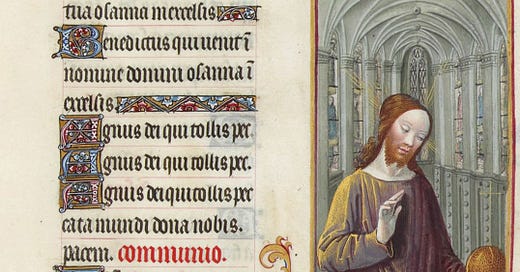 tua osanna in excelsis
Benedictus qui uenit ī
nomine domini osanna ī
excelsis
Agnus dei qui tollis pec.
Agnus dei qui tollis pec.
Agnus dei qui tollis pec
cata mundi dona nobis.
pacem. communio.